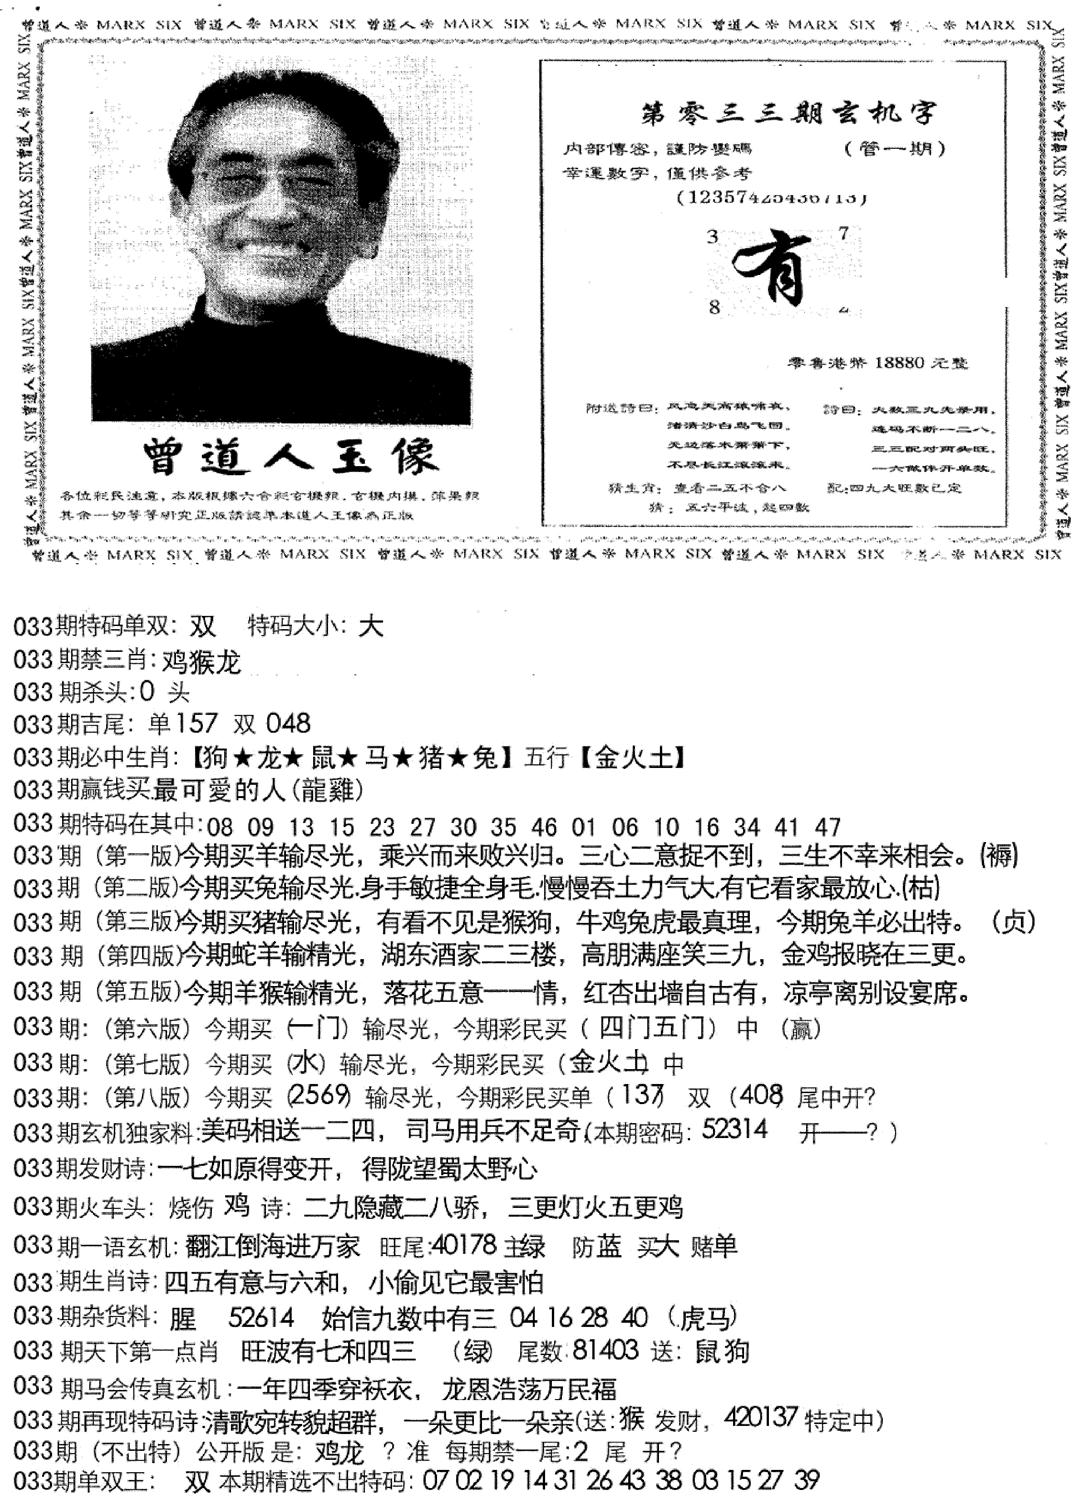 曾道人※ MARX SIX 曾道人※ MARX SIX 曾道人※ MARX SIX 曾道人※ MARX SIX 曾道人※ MARX SIX 曾道人※ MARX SIX
第零三三期玄机字
內部傳密，謹防變碼 （管一期）
幸運數字，僅供參考
3 7
有
8
零售港幣 18880 元整
附送詩曰：风急天高猿啸哀， 詩曰：大数三九先录用，
渚清沙白鸟飞回。 连码不断一二八。
无边落木萧萧下， 三三配对两头旺，
不尽长江滚滚来。 一六做伴开单数。
猜生肖：查看二五不合八 配:四九大旺數已定
猜：五六平波，起四數
曾道人玉像
各位彩民注意，本版根據六合彩玄機報．玄機內撰．蘋果報
其余一切等等研究正版請認準本道人玉像為正版
曾道人※ MARX SIX 曾道人※ MARX SIX 曾道人※ MARX SIX 曾道人※ MARX SIX 曾道人※ MARX SIX 曾道人※ MARX SIX
033期特码单双：双 特码大小：大
033期禁三肖:鸡猴龙
033期杀头:0 头
033期吉尾：单157 双 048
033期必中生肖:【狗★龙★鼠★马★猪★兔】五行【金火土】
033期赢钱买.最可愛的人(龍雞)
033期特码在其中:08 09 13 15 23 27 30 35 46 01 06 10 16 34 41 47
033期（第一版)今期买羊输尽光，乘兴而来败兴归。三心二意捉不到，三生不幸来相会。(褥)
033期（第二版)今期买兔输尽光.身手敏捷全身毛.慢慢吞土力气大.有它看家最放心.(枯)
033期（第三版)今期买猪输尽光，有看不见是猴狗，牛鸡兔虎最真理，今期兔羊必出特。（贞）
033期（第四版)今期蛇羊输精光，湖东酒家二三楼，高朋满座笑三九，金鸡报晓在三更。
033期（第五版)今期羊猴输精光，落花五意一一情，红杏出墙自古有，凉亭离别设宴席。
033期：（第六版）今期买（一门）输尽光，今期彩民买（ 四门五门） 中 （赢）
033期：（第七版）今期买（水）输尽光，今期彩民买（金火土）中
033期：（第八版）今期买（2569）输尽光，今期彩民买单（137） 双（408）尾中开?
033期玄机独家料:美码相送一二四，司马用兵不足奇(本期密码：52314 开——? ）
033期发财诗:一七如原得变开，得陇望蜀太野心
033期火车头：烧伤 鸡 诗：二九隐藏二八骄，三更灯火五更鸡
033期一语玄机:翻江倒海进万家 旺尾:40178 主绿 防蓝 买大 赌单
033期生肖诗:四五有意与六和，小偷见它最害怕
033期杂货料：腥 52614 始信九数中有三 04 16 28 40（.虎马）
033期天下第一点肖 旺波有七和四三 （绿） 尾数:81403 送：鼠狗
033期马会传真玄机:一年四季穿袄衣，龙恩浩荡万民福
033期再现特码诗:清歌宛转貌超群，一朵更比一朵亲(送:猴 发财，420137特定中)
033期（不出特）公开版 是：鸡龙 ？准 每期禁一尾:2 尾 开?
033期单双王： 双 本期精选不出特码：07 02 19 14 31 26 43 38 03 15 27 39